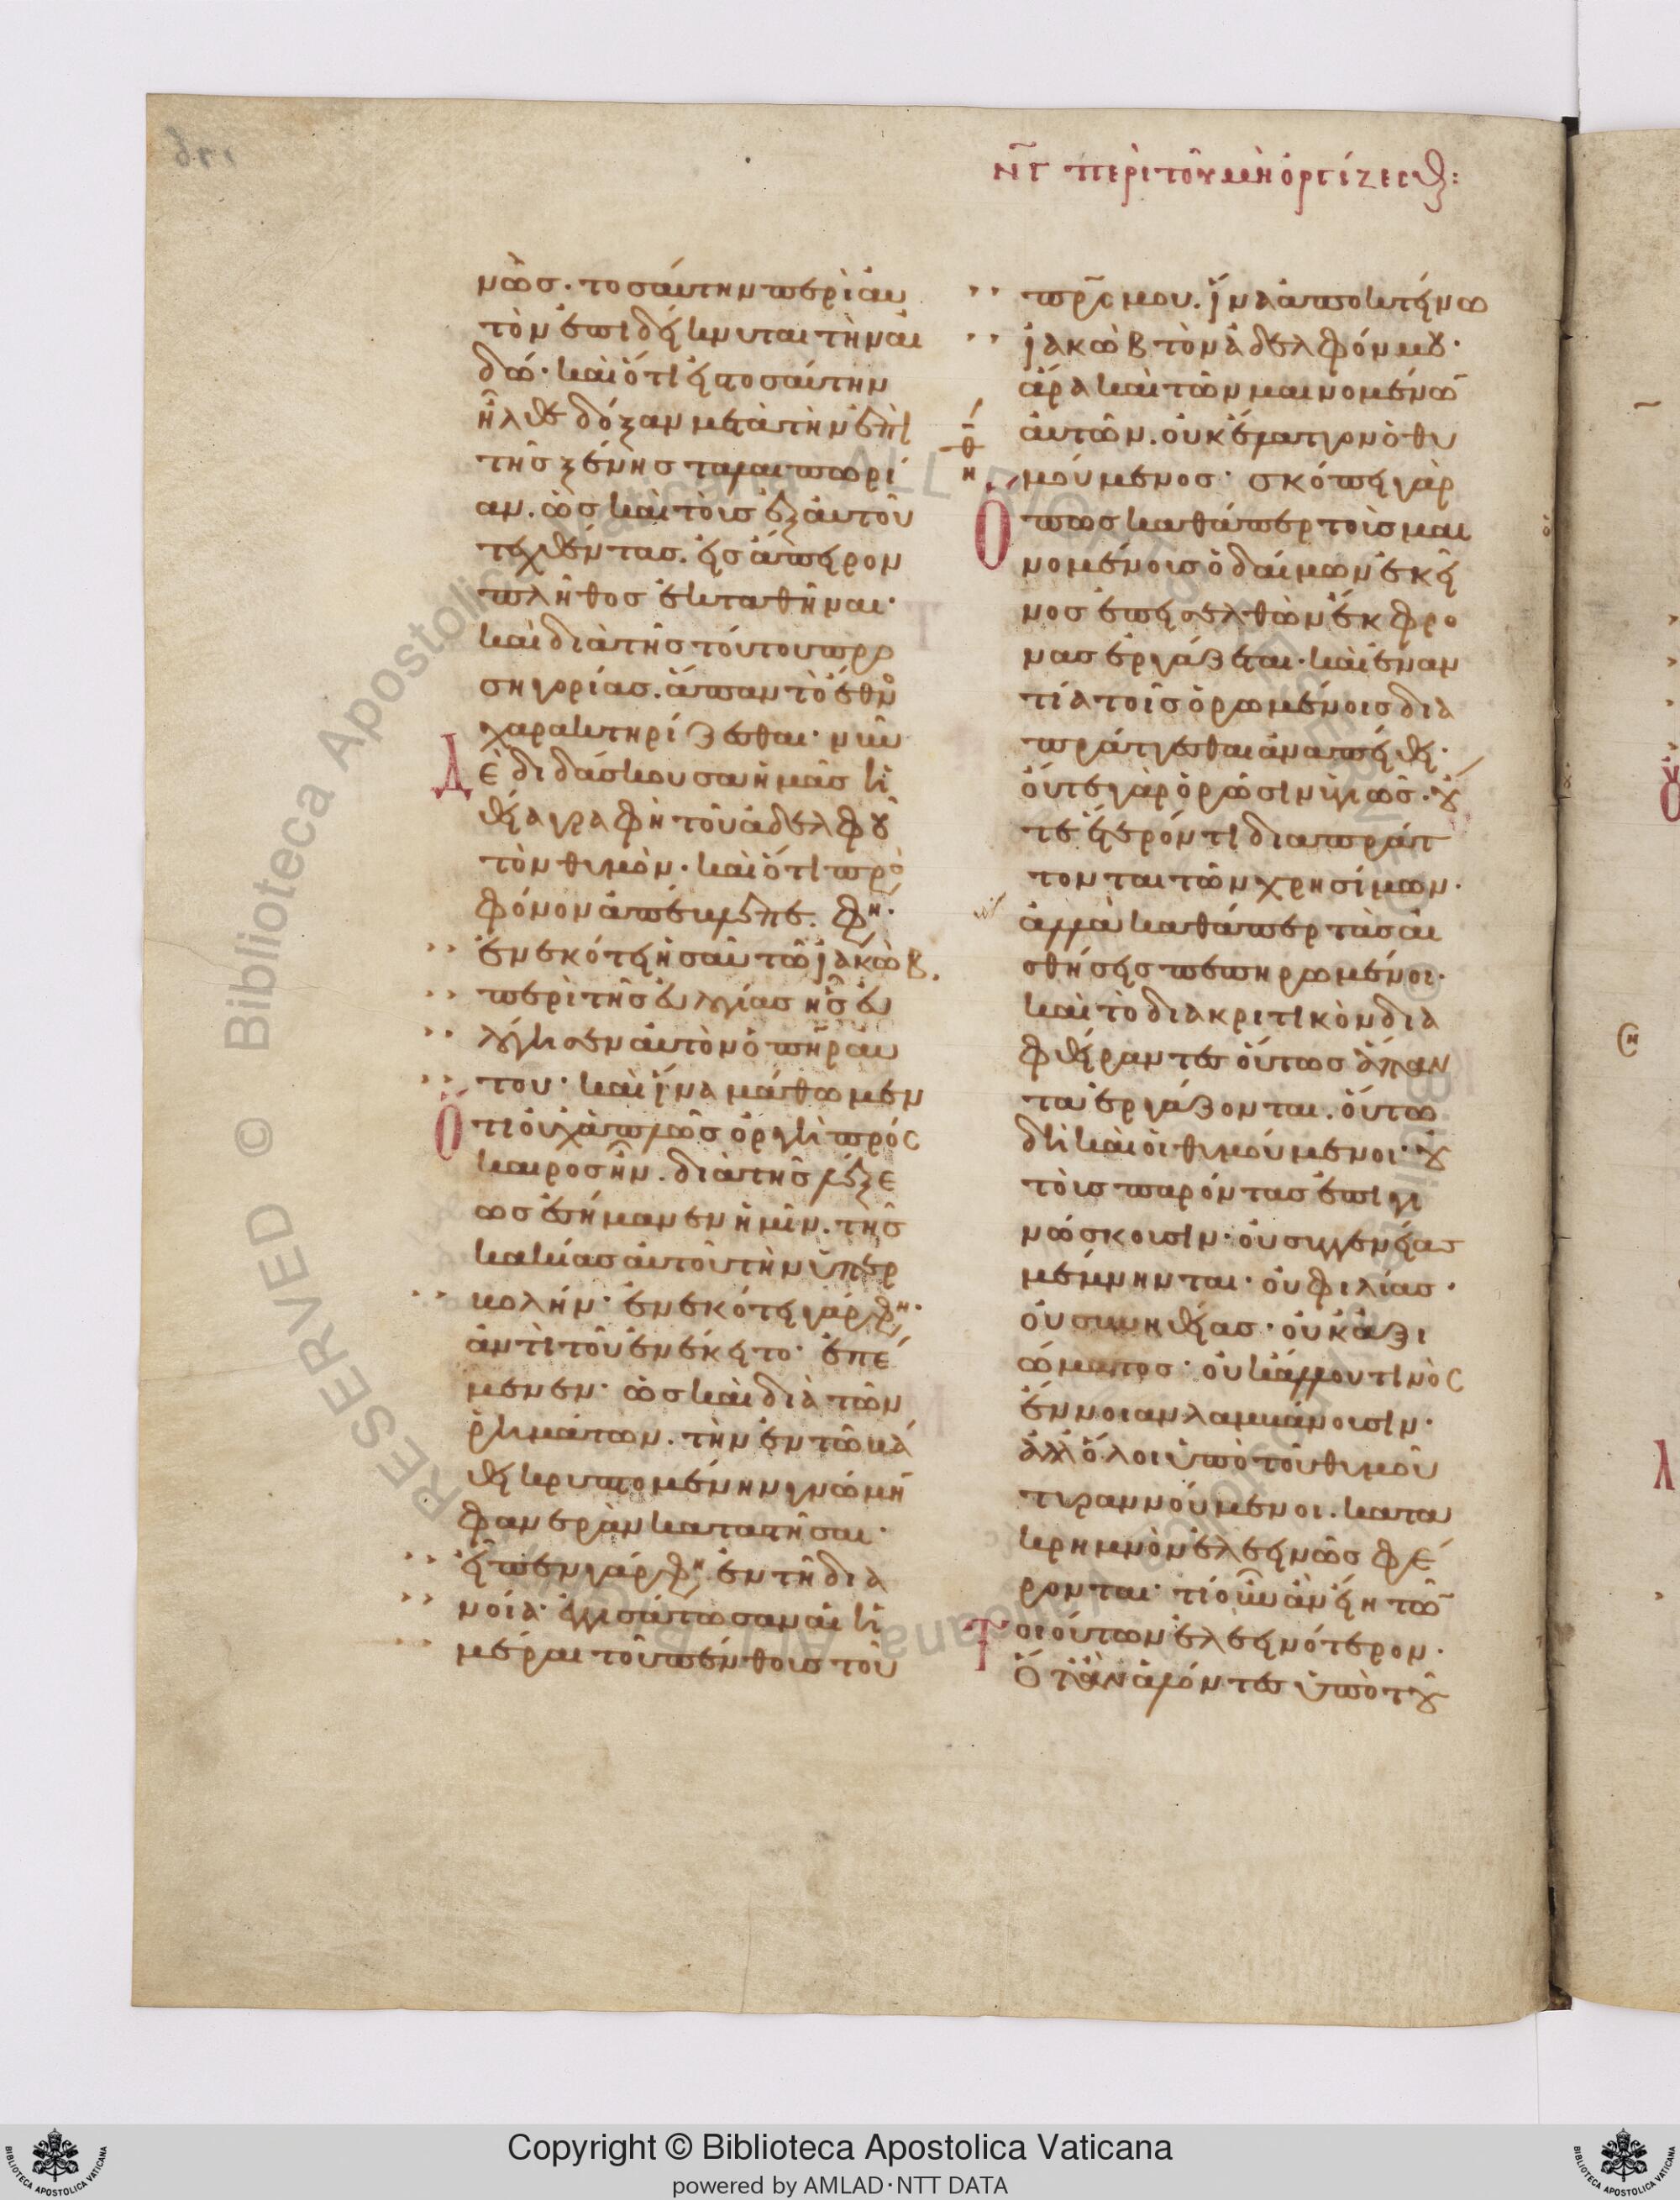 νγ περὶ τοῦ μὴ ὀργίζεσθαι:
νῶσ· τοσαύτην περὶ αυ
τὸν ἐπιδείκνυται τὴν αἰ
δώ· καὶ ὅτι εἰς τοσαύτην
ἦλθε δόξαν μετὰ τὴν ἐπὶ
τῆς ξένης ταλαιπωρί
αν. ὡς καὶ τοὺς ἐξ αυτοῦ
τεχθέντας. εἰς ἄπειρον
πλῆθος ἐκταθῆναι·
καὶ διὰ τῆς τούτου προ
σηγορίας. ἅπαν τὸ ἔθνος
χαρακτηρίζεσθαι· νῦν
Δὲ διδάσκουσα ἡμᾶς ἡ
θεία γραφὴ τοῦ ἀδελφοῦ
τὸν θυμὸν· καὶ ὅτι πρὸ
φόνον ἀπέκλινε. φη·
ἐνεκότει ησαῦ τῶ ϊακὼβ.
περὶ τῆς εὐλογίας ἧς εὐ
λόγησεν αὐτὸν ὁ πηρ αυ
του· καὶ ἵνα μάθωμεν
Ὅτι οὐχ ἁπλῶς ὀργὴ πρός
καιρος ἦν. διὰ τῆς λέξε
ως ἐσήμανεν ἡμῖν. τῆς
κακίας αὐτοῦ τὴν ὑπερ
βολήν· ἐνεκότει γάρ φη·
ἀντὶ τοῦ ἐνέκειτο· ἐπέ
μενεν· ὡς καὶ διὰ τῶν
ῥημάτων. τὴν ἐν τῶ βά
θει κρυπτομένην γνώμη
φανερὰν καταστῆσαι·
εἶπεν γάρ φη· ἐν τῆ δια
νοία· ἐγγισάτωσαν αἱ ἡ
μέραι τοῦ πένθους τοῦ
πρς μου. ἵνα ἀποκτείνω
ϊακὼβ τὸν ἀδελφόν μου·
ἆρα καὶ τῶν μαινομένω
αὐτῶν. οὐκ ἐλαττον ὁ θυ
μούμενος· σκόπει γὰρ
Ὅπως καθάπερ τοῖς μαι
νομένοις ὁ δαίμων ἐκεῖ
νος ἐπεισελθὼν ἔκφρο
νας ἐργάζεται· καὶ ἐναν
τία τοῖς ὁρωμένοις δια
πράττεσθαι ἀναπείθει·
οὔτε γὰρ ὁρῶσιν ὑγιῶς· ού
τε εἰς δέον τι διαπράτ
τονται τῶν χρησίμων·
ἀλλὰ καθάπερ τὰς αἰ
σθήσεις πεπηρωμένοι·
καὶ τὸ διακριτικὸν δια
φθείραντες οὕτως ἅπαν
τα ἐργάζονται. οὕτω
δὴ καὶ οἱ θυμούμενοι· οὐ
τοὺς παρόντας ἐπιγι
νώσκουσιν· οὐ συγγενείας
μέμνηνται· οὐ φιλίας·
οὐ συνηθείας· οὐκ ἀξι
ώματος· οὐκ ἄλλου τινὸς
ἔννοιαν λαμβάνουσιν·
ἀλλ᾽ ὅλοι ὑπὸ τοῦ θυμοῦ
τυραννούμενοι. κατα
κρημνὸν ἐλεεινῶς φέ
ρονται· τί οὖν ἂν εἴη τῶ
Τοιούτων ἐλεεινότερον·
ὅταν ἁλόντες ὑπὸ τοῦ
Copyright © Biblioteca Apostolica Vaticana
powered by AMLAD·NTT DATA